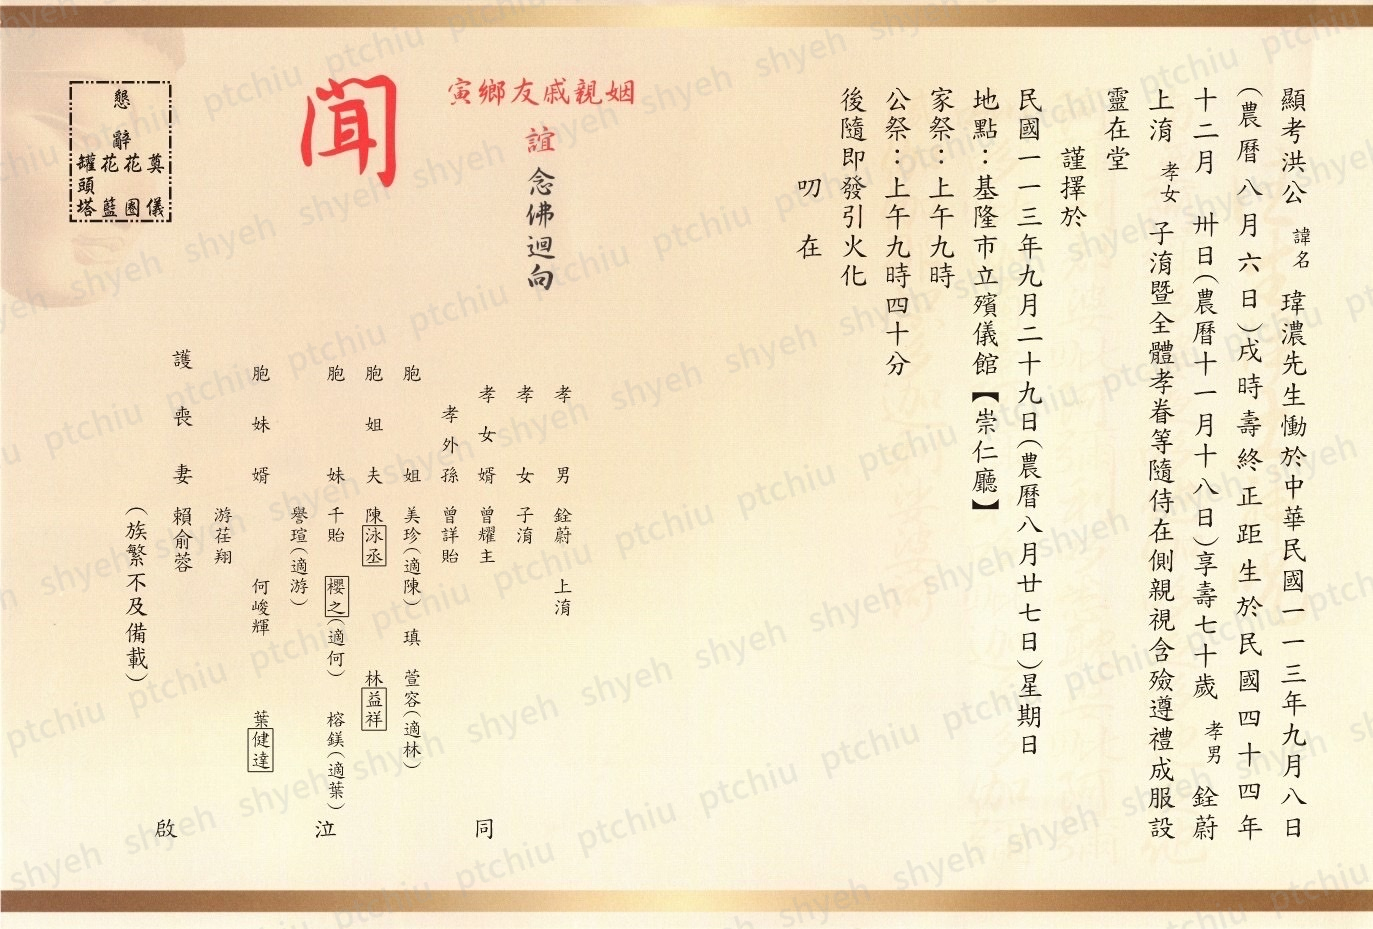 顯考洪公諱名瑋濃先生慟於中華民國一一三年九月八日
(農曆八月六日)戌時壽終正距生於民國四十四年
十二月卅日(農曆十一月十八日)享壽七十歲孝男銓蔚
上淯孝女子淯暨全體孝眷等隨侍在側親視含殮遵禮成服設
靈在堂
謹擇於
民國一一三年九月二十九日(農曆八月廿七日)星期日
地點：基隆市立殯儀館【崇仁廳】
家祭：上午九時
公祭：上午九時四十分
後隨即發引火化
叨在
姻親戚友鄉寅
誼念佛迴向
聞
孝男銓蔚 上淯
孝女子淯
孝女婿曾耀主
孝外孫曾詳貽
胞姐美珍(適陳) 瑱萱容(適林)
胞姐夫陳泳丞 林益祥
胞妹千貽 櫻之(適何) 榕鎂(適葉)
譽瑄(適游)
胞妹婿何峻輝 葉健達
游荏翔
護喪妻賴俞蓉
(族繁不及備載)
同泣啟
懇辭
奠儀
花圈
花籃
罐頭塔
shyeh ptchiu